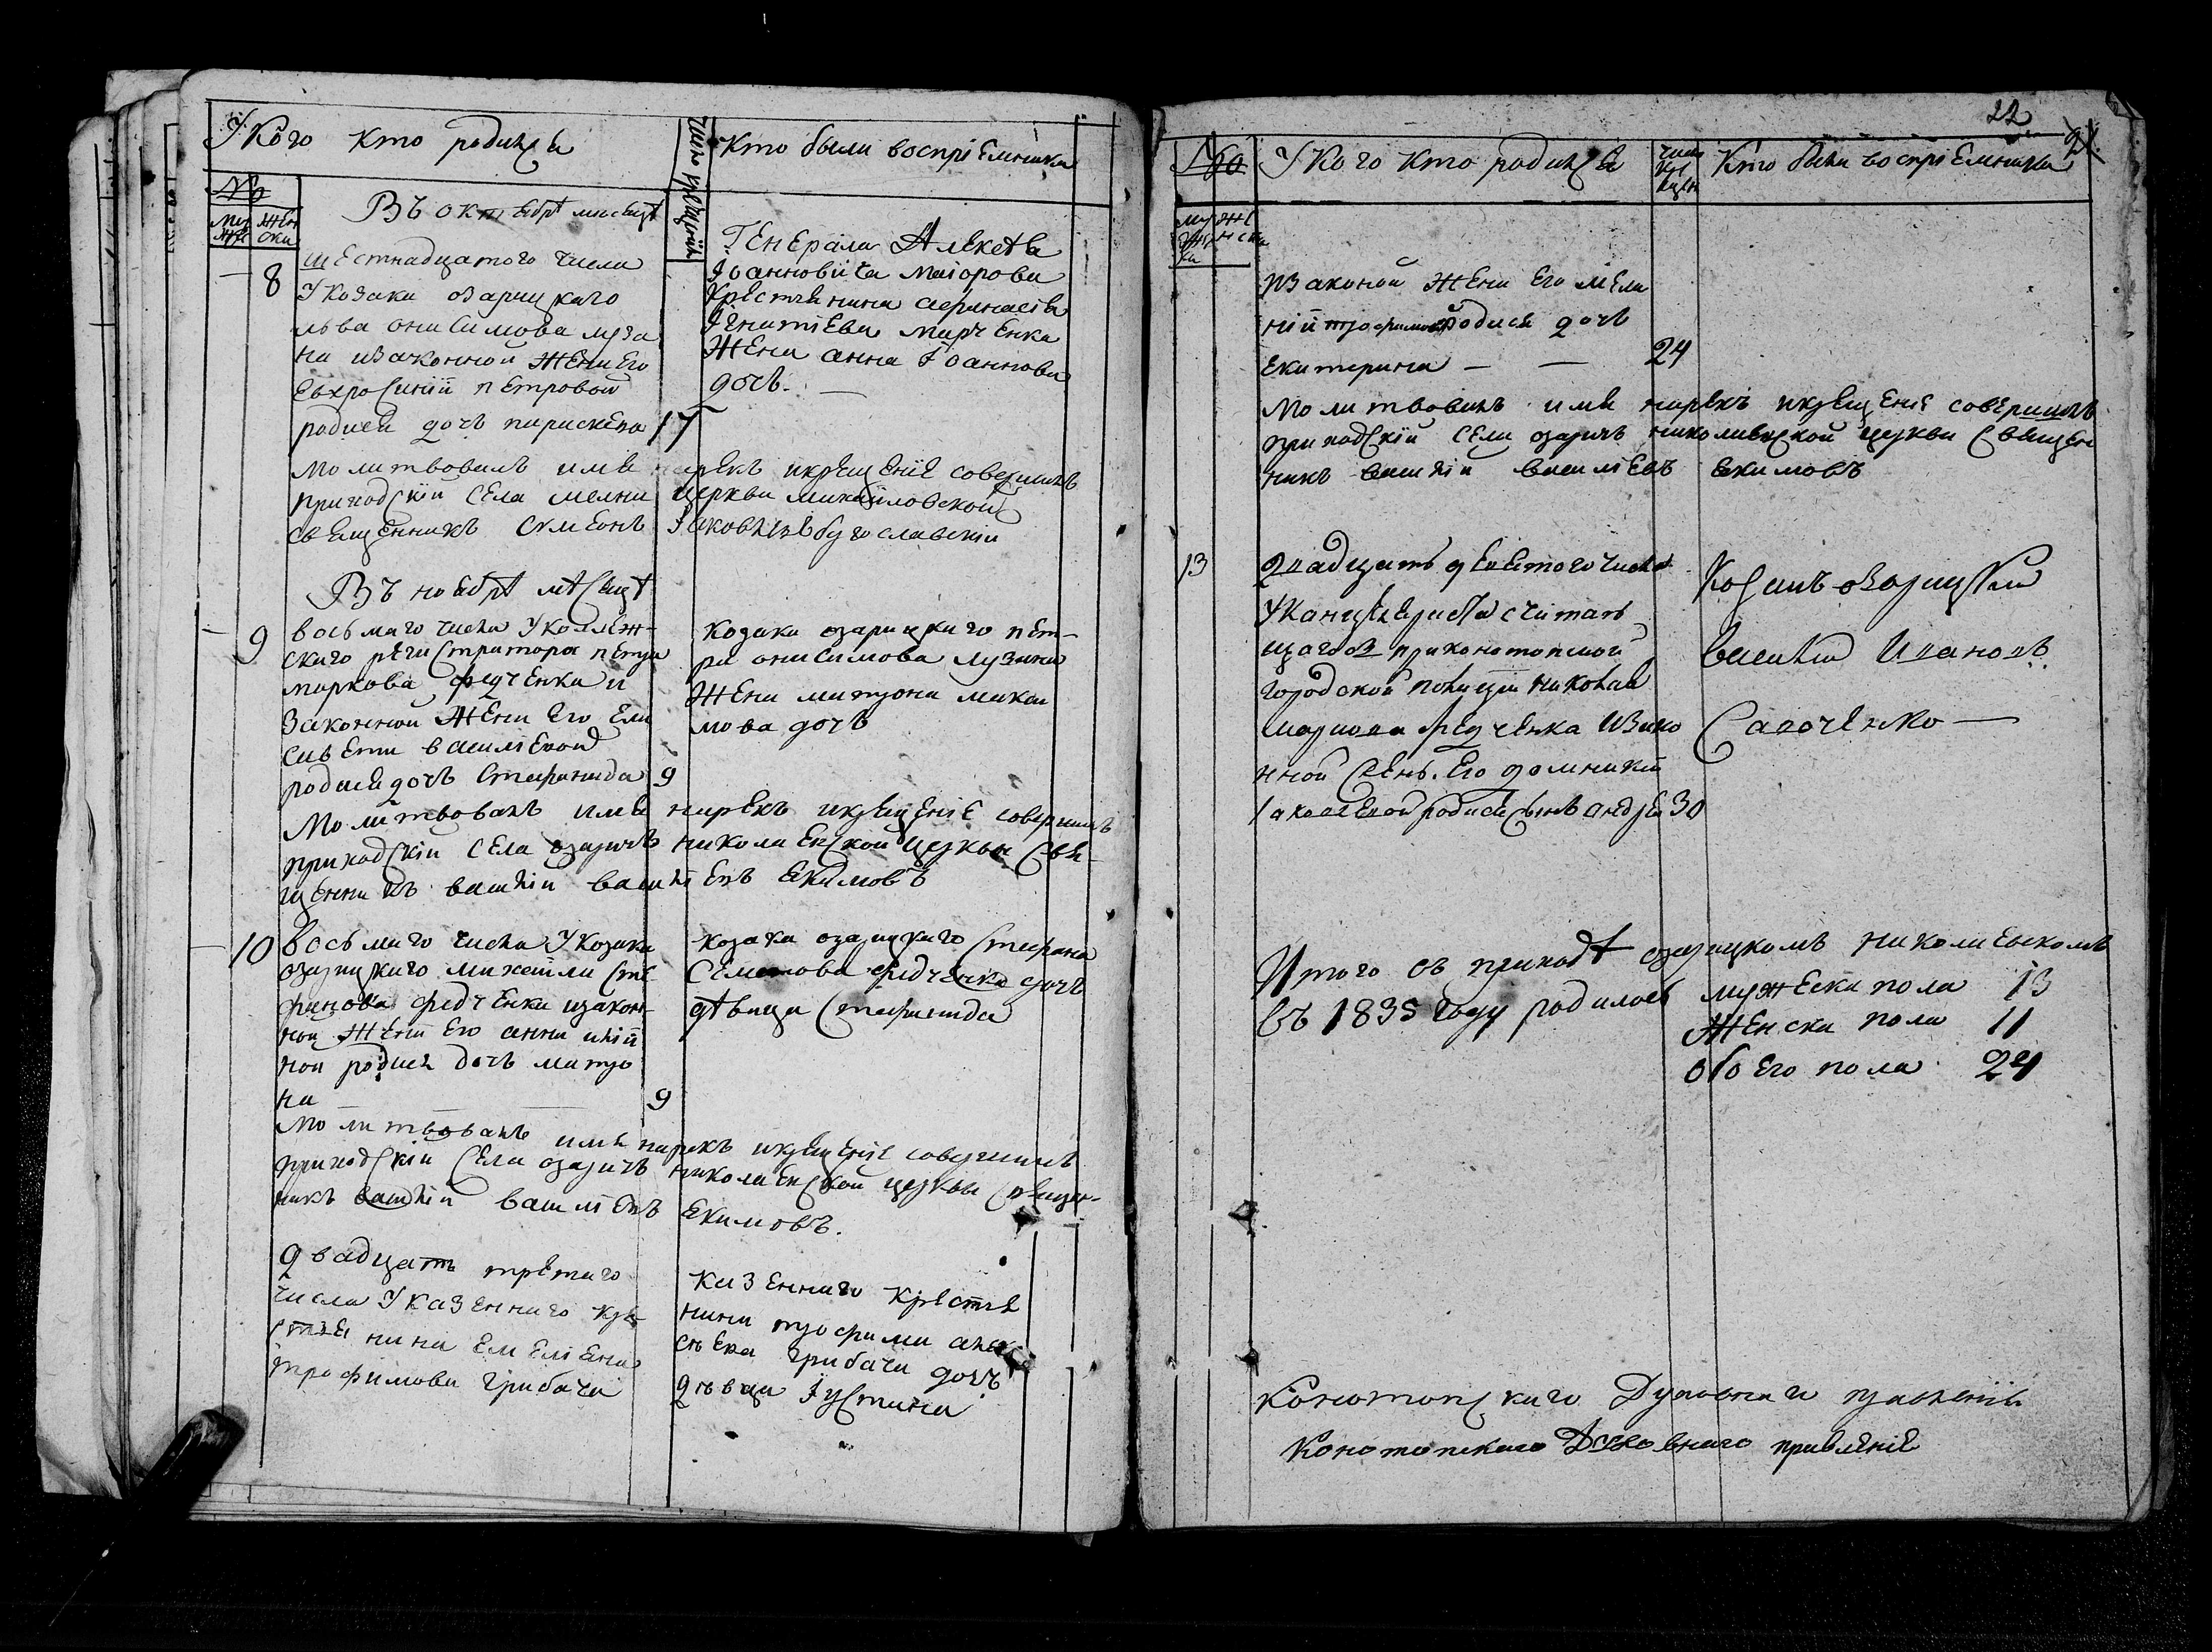 У Кого кто родился
Число крещенія
Кто были воспріемники
№
Муж жес
жен ски
Въ октябрѣ месяцѣ
8
шестнадцатого числа
У козака озарицкаго
льва онисимова луза
на изаконной жены его
Евхросиніи петровой
родися дочь параскева 17
Генерала Алексѣя
Іоанновича маіорова
крестьянина афанасія
Игнатіева марченка
жена анна Іоаннова
дочь.
молитвовалъ имя нарекъ икрещеніе совершилъ
приходскій села мелни церкви михайловской
священникъ Симеонъ Іаковлевъ бугославскій
Въ ноябрѣ мѣсяцѣ
9
восьмаго числа У коллеж-
скаго регистратора петра
маркова федченка и
законной жены его Ели
саветы василіевой
родися дочь Стефанида 9
козака озарицкаго пет-
ра онисимова лузана
жена матрона михаи
лова дочь
Молитвовалъ имя нарекъ икрещеніе совершилъ
приходскій села озаричъ николаевской церкви свя-
щенникъ василій василіевъ Екимовъ
10
восьмаго числа У козака
озарицкаго михаила сте
фанова федченка изакон-
ной жены его анны
ной родися дочь матро
на 9
козака озарицкаго Стефана
Семенова федченка дочь
дѣвица Стефанида
Молитвовалъ имя нарекъ икрещеніе совершилъ
приходскій села озаричъ николаевской церкви священ-
никъ василій василіевъ Екимовъ.
двадцать третаго
числа У казеннаго кре-
стьянина Емеліана
трофимова грибача
казеннаго крестья
нина трофима алек
сѣева грибача дочь
дѣвица Іустина
22
№
У Кого кто родился
число кре щен
Кто были воспріемники
муже ска
женска
изаконой жены его мела
ніи трофимовой родися дочь
екатерина — — 24
молитвовалъ имя нарекъ икрещеніе совершилъ
приходскій села озаричъ николаевской церкви священ
никъ василій василіевъ екимовъ
13
двадцать девятого числа
У канцеляриста считаю
щагося приконотопской
городской полиціи николая
маркова федченка изако
нной жены его домникіи
Іаковлевой родися сынъ андрей 30
козакъ озарицкій
василій Ивановъ
Савченко —
Итого въ приходѣ озарицкомъ николаевскомъ
въ 1835 году родилось мужеска пола 13
женска пола 11
обоего пола 24
Конотопскаго Духовнаго правленія
Конотопскаго Духовнаго правленіе